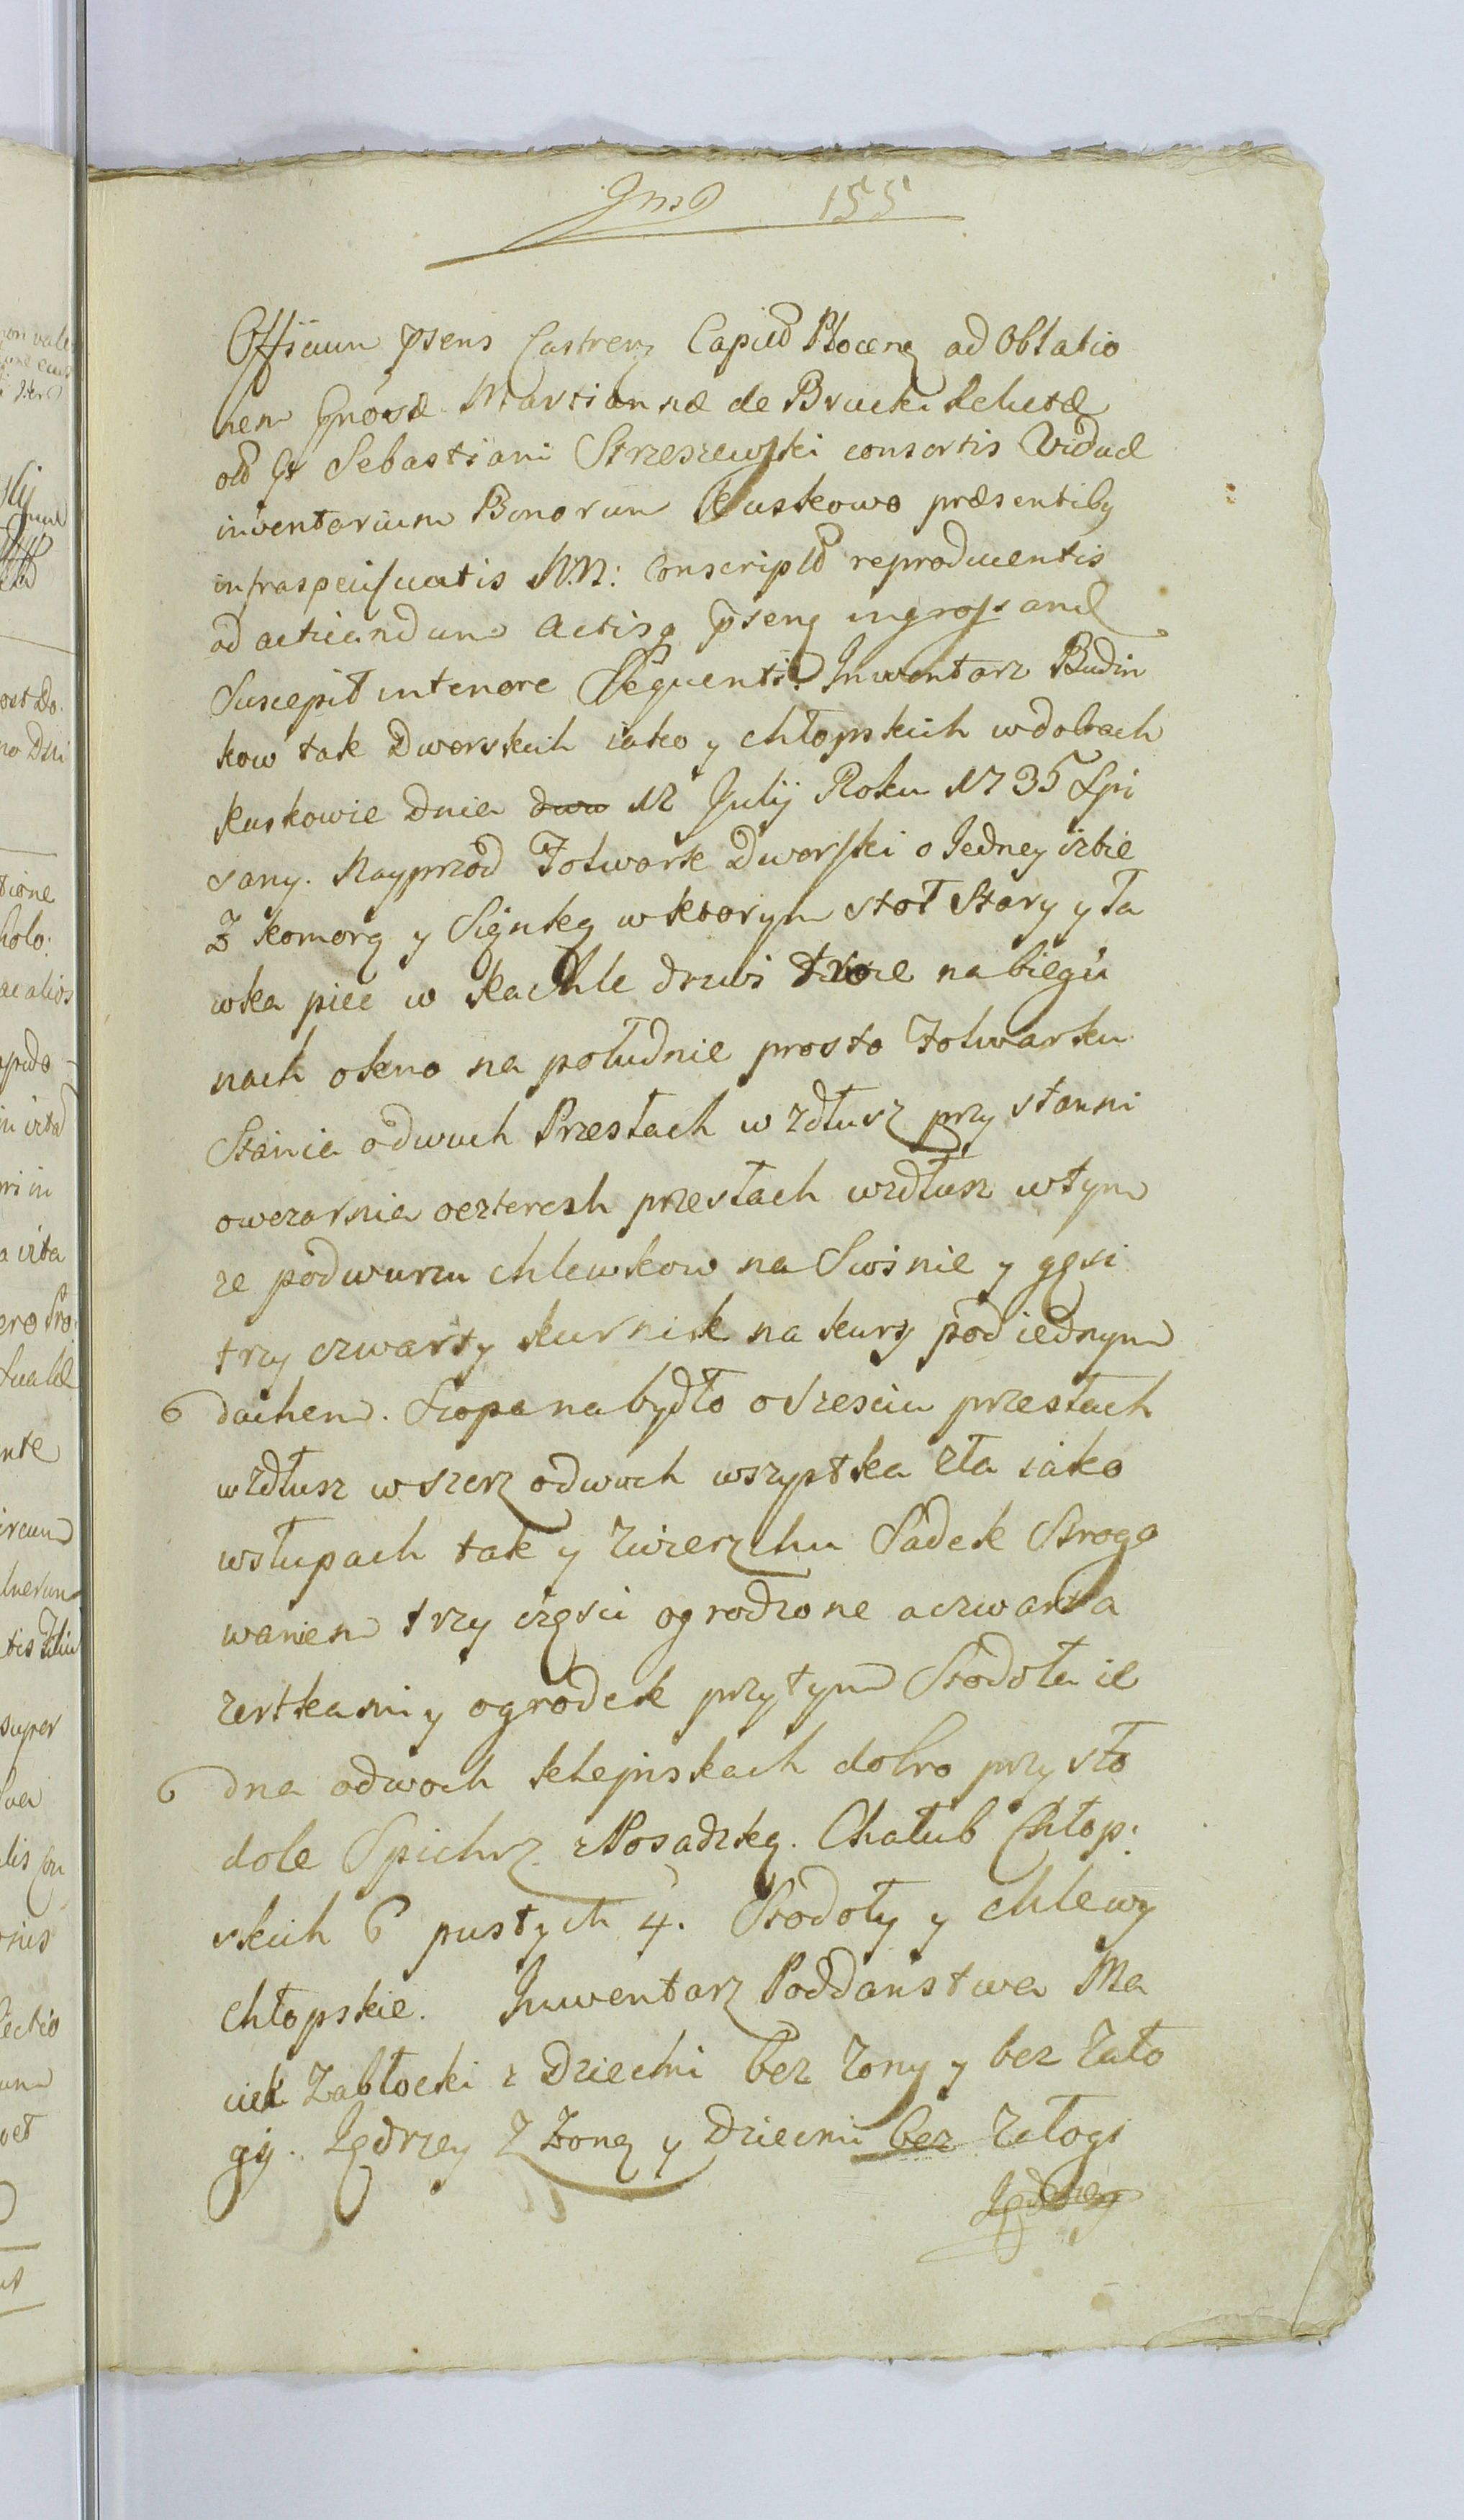 155
Officium pśens Castren Capitał Plocen ad oblatio
nem Gnosæ Martiannæ de Brucki Relictæ
old Gs Sebastiani Strzeszewski consortis Viduæ
inventarium Bonorum Kuskowo præsentiby
infraspecificatis NN: Conscriptd reproducentis
ad acticandum Actisq pśenq ingrossand
Suscepit intenore Sequenti Inwentarz Budin
kow tak Dworskich iako y chłopskich wdobrach
Kuskowie Dnia dwu 12 Julij Roku 1735 Spi
sany. Nayprzod Folwark Dworski o Jedney izbie
Z komorą y Siąnką wktorym stoł Stary y ła
wka piec w kachle drzwi troie na biegu
nach okno na południe prosto Folwarku
Stainia odwuch Przesłach wzdłusz przy stayni
owczarnia oczterech przesłach wzdłusz wtym
ze podwurzu chlewkow na Swinie y gęsi
trzy czwarty kurnik na kury pod iednym
6 dachem. Szopa na bydło oszesciu przesłach
wzdłusz wszerz odwuch wszystka zła iako
wsłupach tak y zwierzchu Sadek Stroga
waniem trzy części ogrodzone aczwarta
zertkami y ogrodek przytym Stodoła ie
6 dna odwoch klepiskach dobro przy sto
dole Spichrz zPosadzką. Chałub Chłop:
skich 6 pustych 4. Stodoły y chlewy
chłopskie. Inwentarz Poddanstwa Ma
ciek Zabłocki z Dziecmi bez Zony y bez Zało
gij. Jędrzey Z Zoną y Dziecmi bez Załogi
Jędrzey